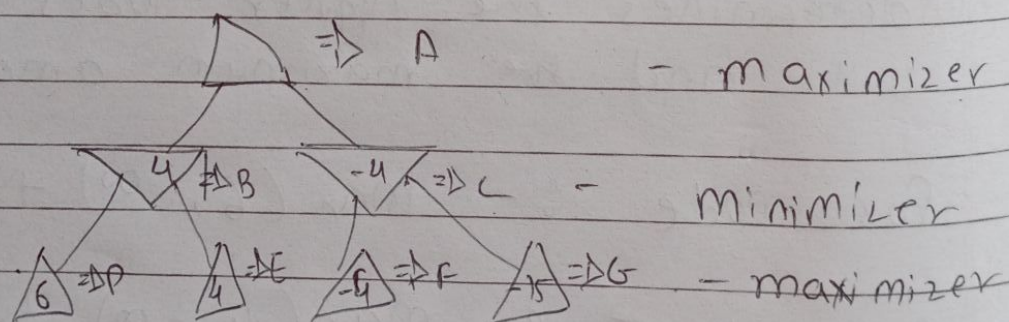 => A - maximizer
4 => B -4 => C - minimizer
6 => D 4 => E -4 => F -15 => G - maximizer